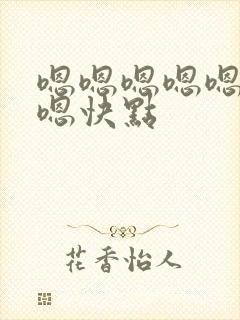 嗯嗯嗯嗯嗯
嗯快點
花香怡人